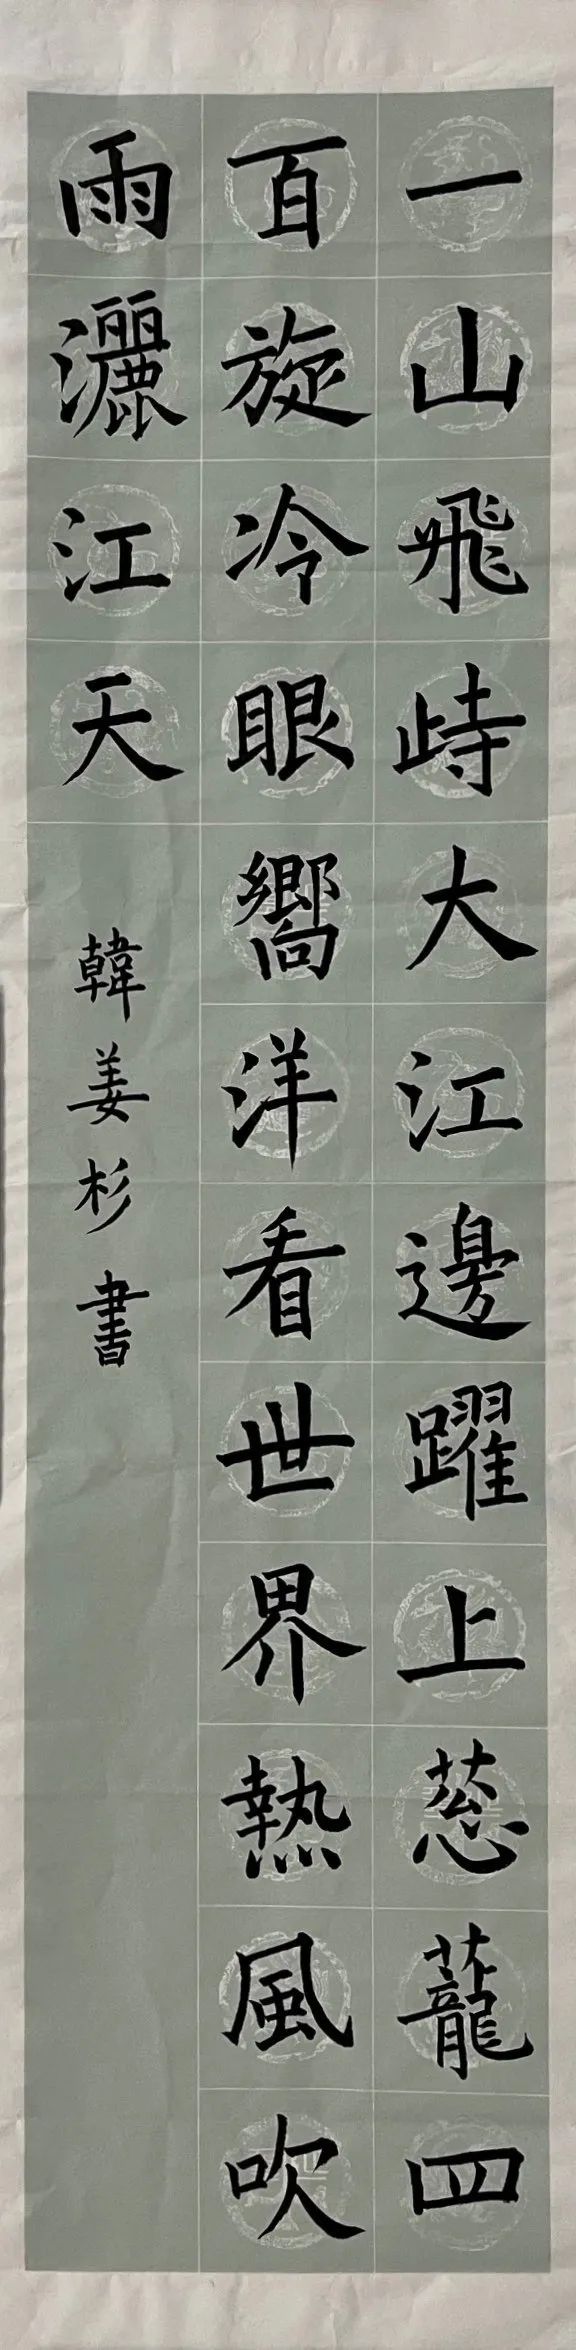 一山飛峙大江邊躍上蔥蘢四
百旋冷眼嚮洋看世界熱風吹
雨灑江天
韓姜杉書